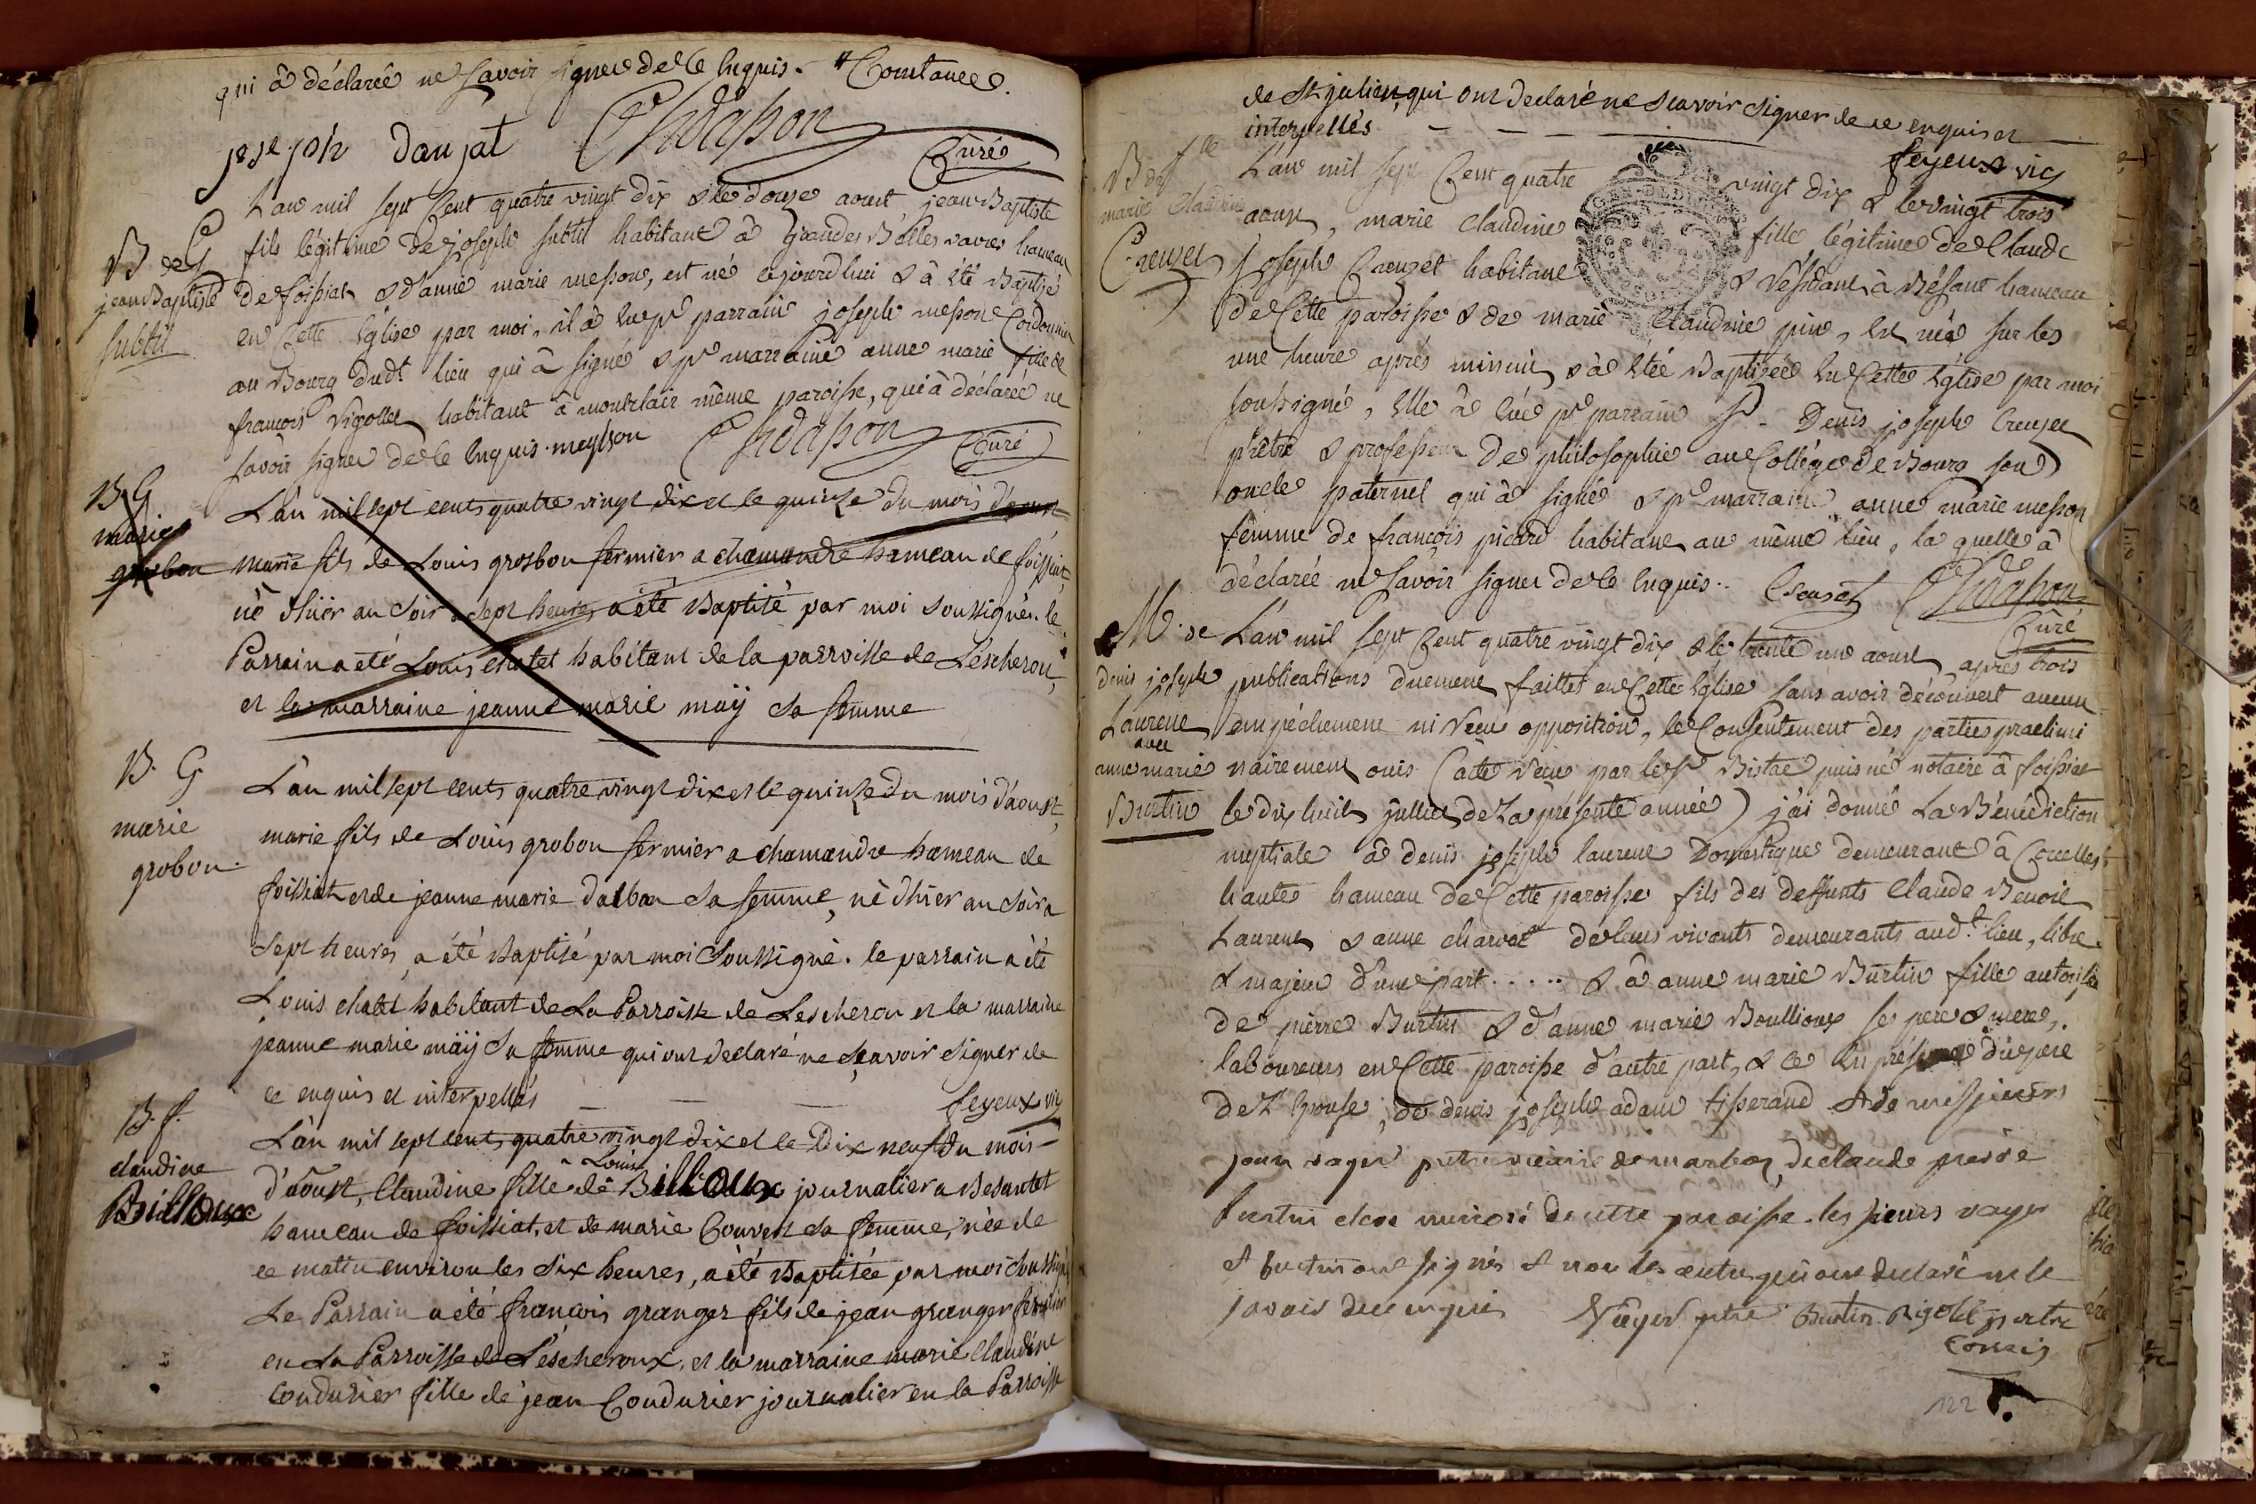 qui â déclarée ne Savoir signer de ce Enquis. Constance.
joseph daujat Chdason Curé
B de G
jean Baptiste
subtil
L'an mil sept Cent quatre vingt dix & le douze aoust jean Baptiste
fils légitime de joseph subtil habitant â grandes Bélles vavres hameau
de foissiat & d'anne marie messon, est né aujourd'hui & â été Baptisé
en Cette Église par moi, il â Eu pr parrain joseph messon Cordonnier
au Bourg dudt lieu qui â signé & pr marraine anne marie fille de
françois Rigollet habitant â montclair même paroisse, qui â déclarée ne
savoir signer de ce Enquis. meysson Chdason Curé
B G
marie
grobon
L'an mil sept cents quatre vingt dix et le quinze du mois d'aoust
marie fils de Louis grosbon fermier a chamandre hameau de foissiat,
né d'hier au soir a sept heures a été Baptisé par moi soussigné. le
Parrain a été Louis chatel habitant de la parroisse de Lescherou,
et la marraine jeanne marie maÿ sa femme
B. G
marie
grobon
L'an mil sept cents quatre vingt dix et le quinze du mois d'aoust,
marie fils de Louis grobon fermier a chamandre hameau de
foissiat et de jeanne marie dalban sa femme, né d'hier au soir a
sept heures, a été Baptisé par moi soussigné. le parrain a été
Louis chatel habitant de La Parroisse de Lescherou et la marraine
jeanne marie maÿ sa femme qui ont declaré ne sçavoir signer de
ce enquis et interpellés feyeux vic
B. f.
claudine
Billoux
L'an mil sept cents quatre vingt dix et le Dix neuf du mois
d'aoust, Claudine fille de Louis Billoux journalier a Besantet
hameau de foissiat, et de marie Couvert sa femme, née de
ce matin environ les six heures, a été Baptisée par moi soussigné
Le Parrain a été françois granger fils de jean granger fermier
en La Parroisse de Lescheroux, et la marraine marie Claudine
Condurier fille de jean Condurier journalier en la Parroisse
de St julien, qui ont declaré ne scavoir signer de ce enquis et
interpellés feyeux vic
B de fle
marie Claudine
Creuzet
L'an mil sept Cent quatre vingt dix & le vingt trois
aoust, marie Claudine fille légitime de Claude
joseph Creuzet habitant & Résidant â Bésant hameau
de Cette paroisse & de marie Claudine pin, Est née sur les
une heure après minuit & â Etée Baptisée En Cette Église par moi
soussigné, Elle â Eue pr parrain Sr Denis joseph Creuzet
prêtre & professeur de philosophie au Collége de Bourg son
oncle paternel qui â signé & pr marraine anne marie messon
femme de françois picard habitant au même lieu, la quelle â
déclarée ne Savoir signer de ce Enquis. Creuzet Chdason Curé
M. de
denis joseph
Laurent
avec
anne marie
Burtin
L'an mil sept Cent quatre vingt dix & le trente un aoust après trois
publications duement faittes en Cette Église sans avoir découvert aucun
empéchement ni Reçu opposition, le Consentement des parties praelimi
nairement ouis (acte Reçu par le Sr Bistac puisné notaire â foissiat
le dix huit juillet de La présente année) j'ai donné La Bénédiction
nuptiale â denis joseph laurent Domestique demeurant â Corcelles
hautes hameau de Cette paroisse fils des deffunts Claude Benoit
Laurent & anne charvet de leurs vivants demeurants audt. lieu, libre
& majeur d'une part..... & â anne marie Burtin fille autorisée
de pierre Burtin & d'anne marie Boullioux ses pere & mere,
laboureurs en Cette paroisse d'autre part, & ce En présence du pere
de L'Épouse, de denis joseph adam tisserand & de messieurs
jean vager prêtre vicaire de marboz, de claude pierre
burtin clerc minoré de cette paroisse. les sieurs vager
& burtin ont signés & non les autres qui ont declaré ne le
savoir de ce enquis Vager ptre Burtin Rigollet prtre
Comis
122